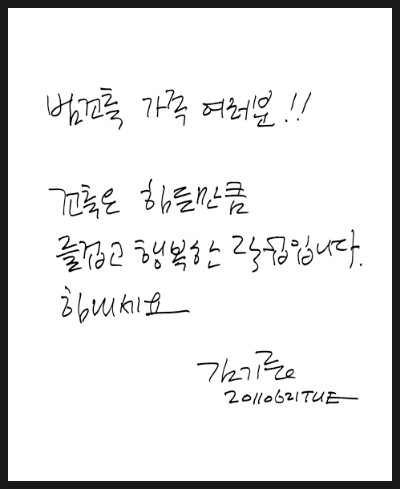 범건축 가족 여러분!!
건축은 힘든만큼
즐겁고 행복한 작업입니다.
힘내세요
김기른
20110621TUE